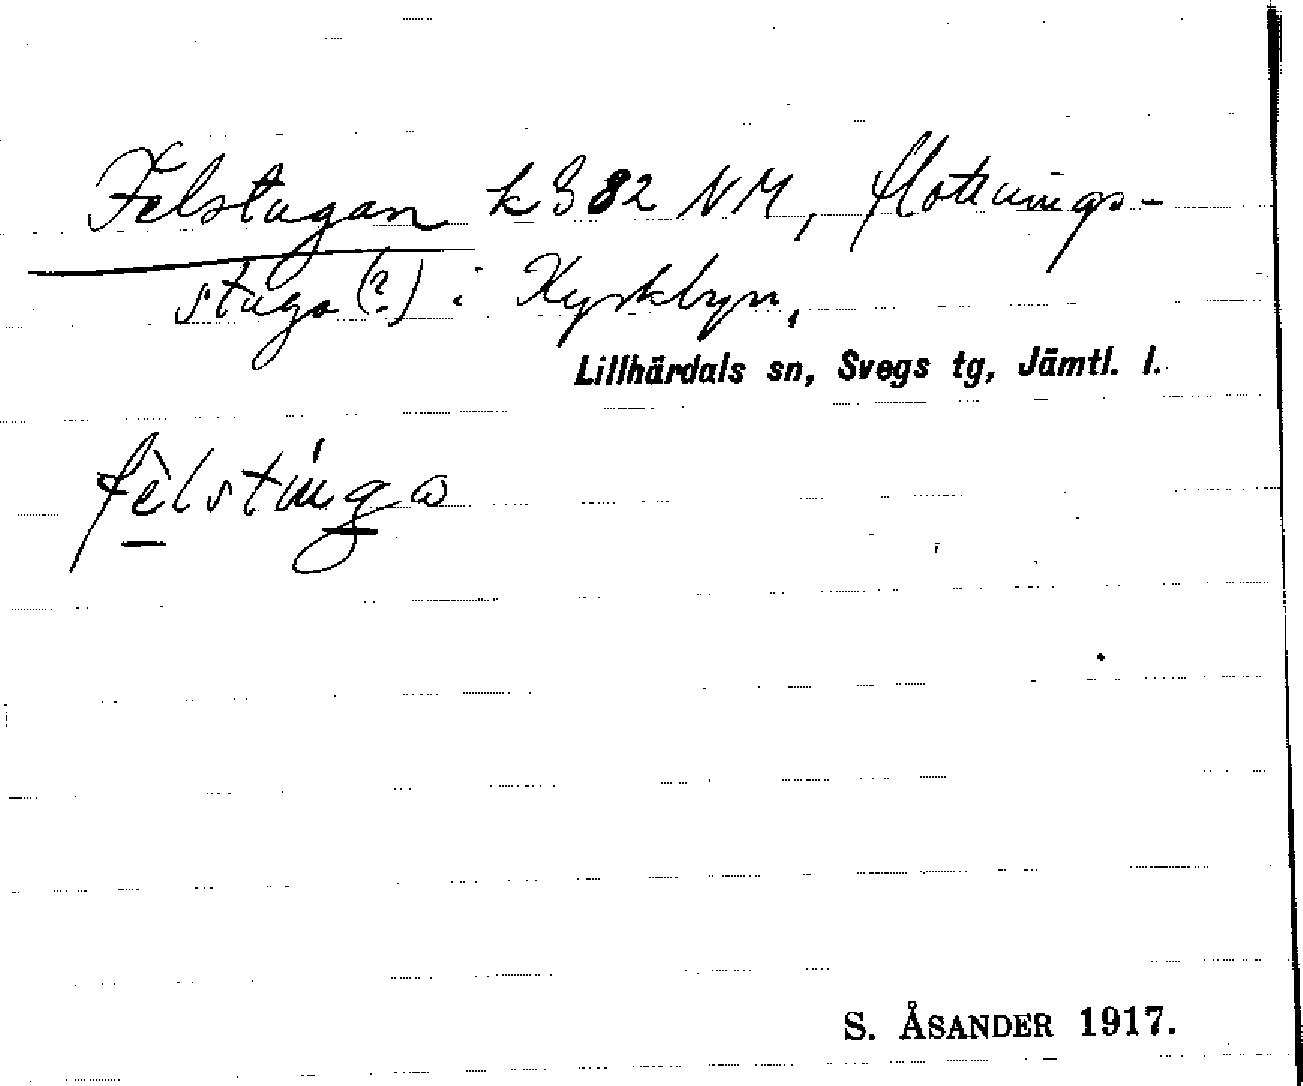 Felstugan k 382 NM, flottnings-
stuga (?) i Kyrkbyn,
Lillhärdals sn, Svegs tg, Jämtl. l.
fèlstúga
S. ÅSANDER 1917.